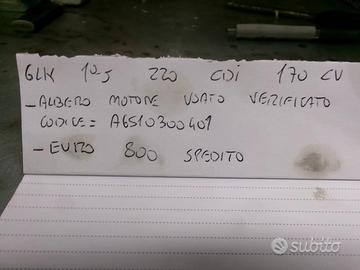 GLK 10-5 220 CDI 170 CV
- ALBERO MOTORE USATO VERIFICATO
CODICE = A6510300401
- EURO 800 SPEDITO
subito